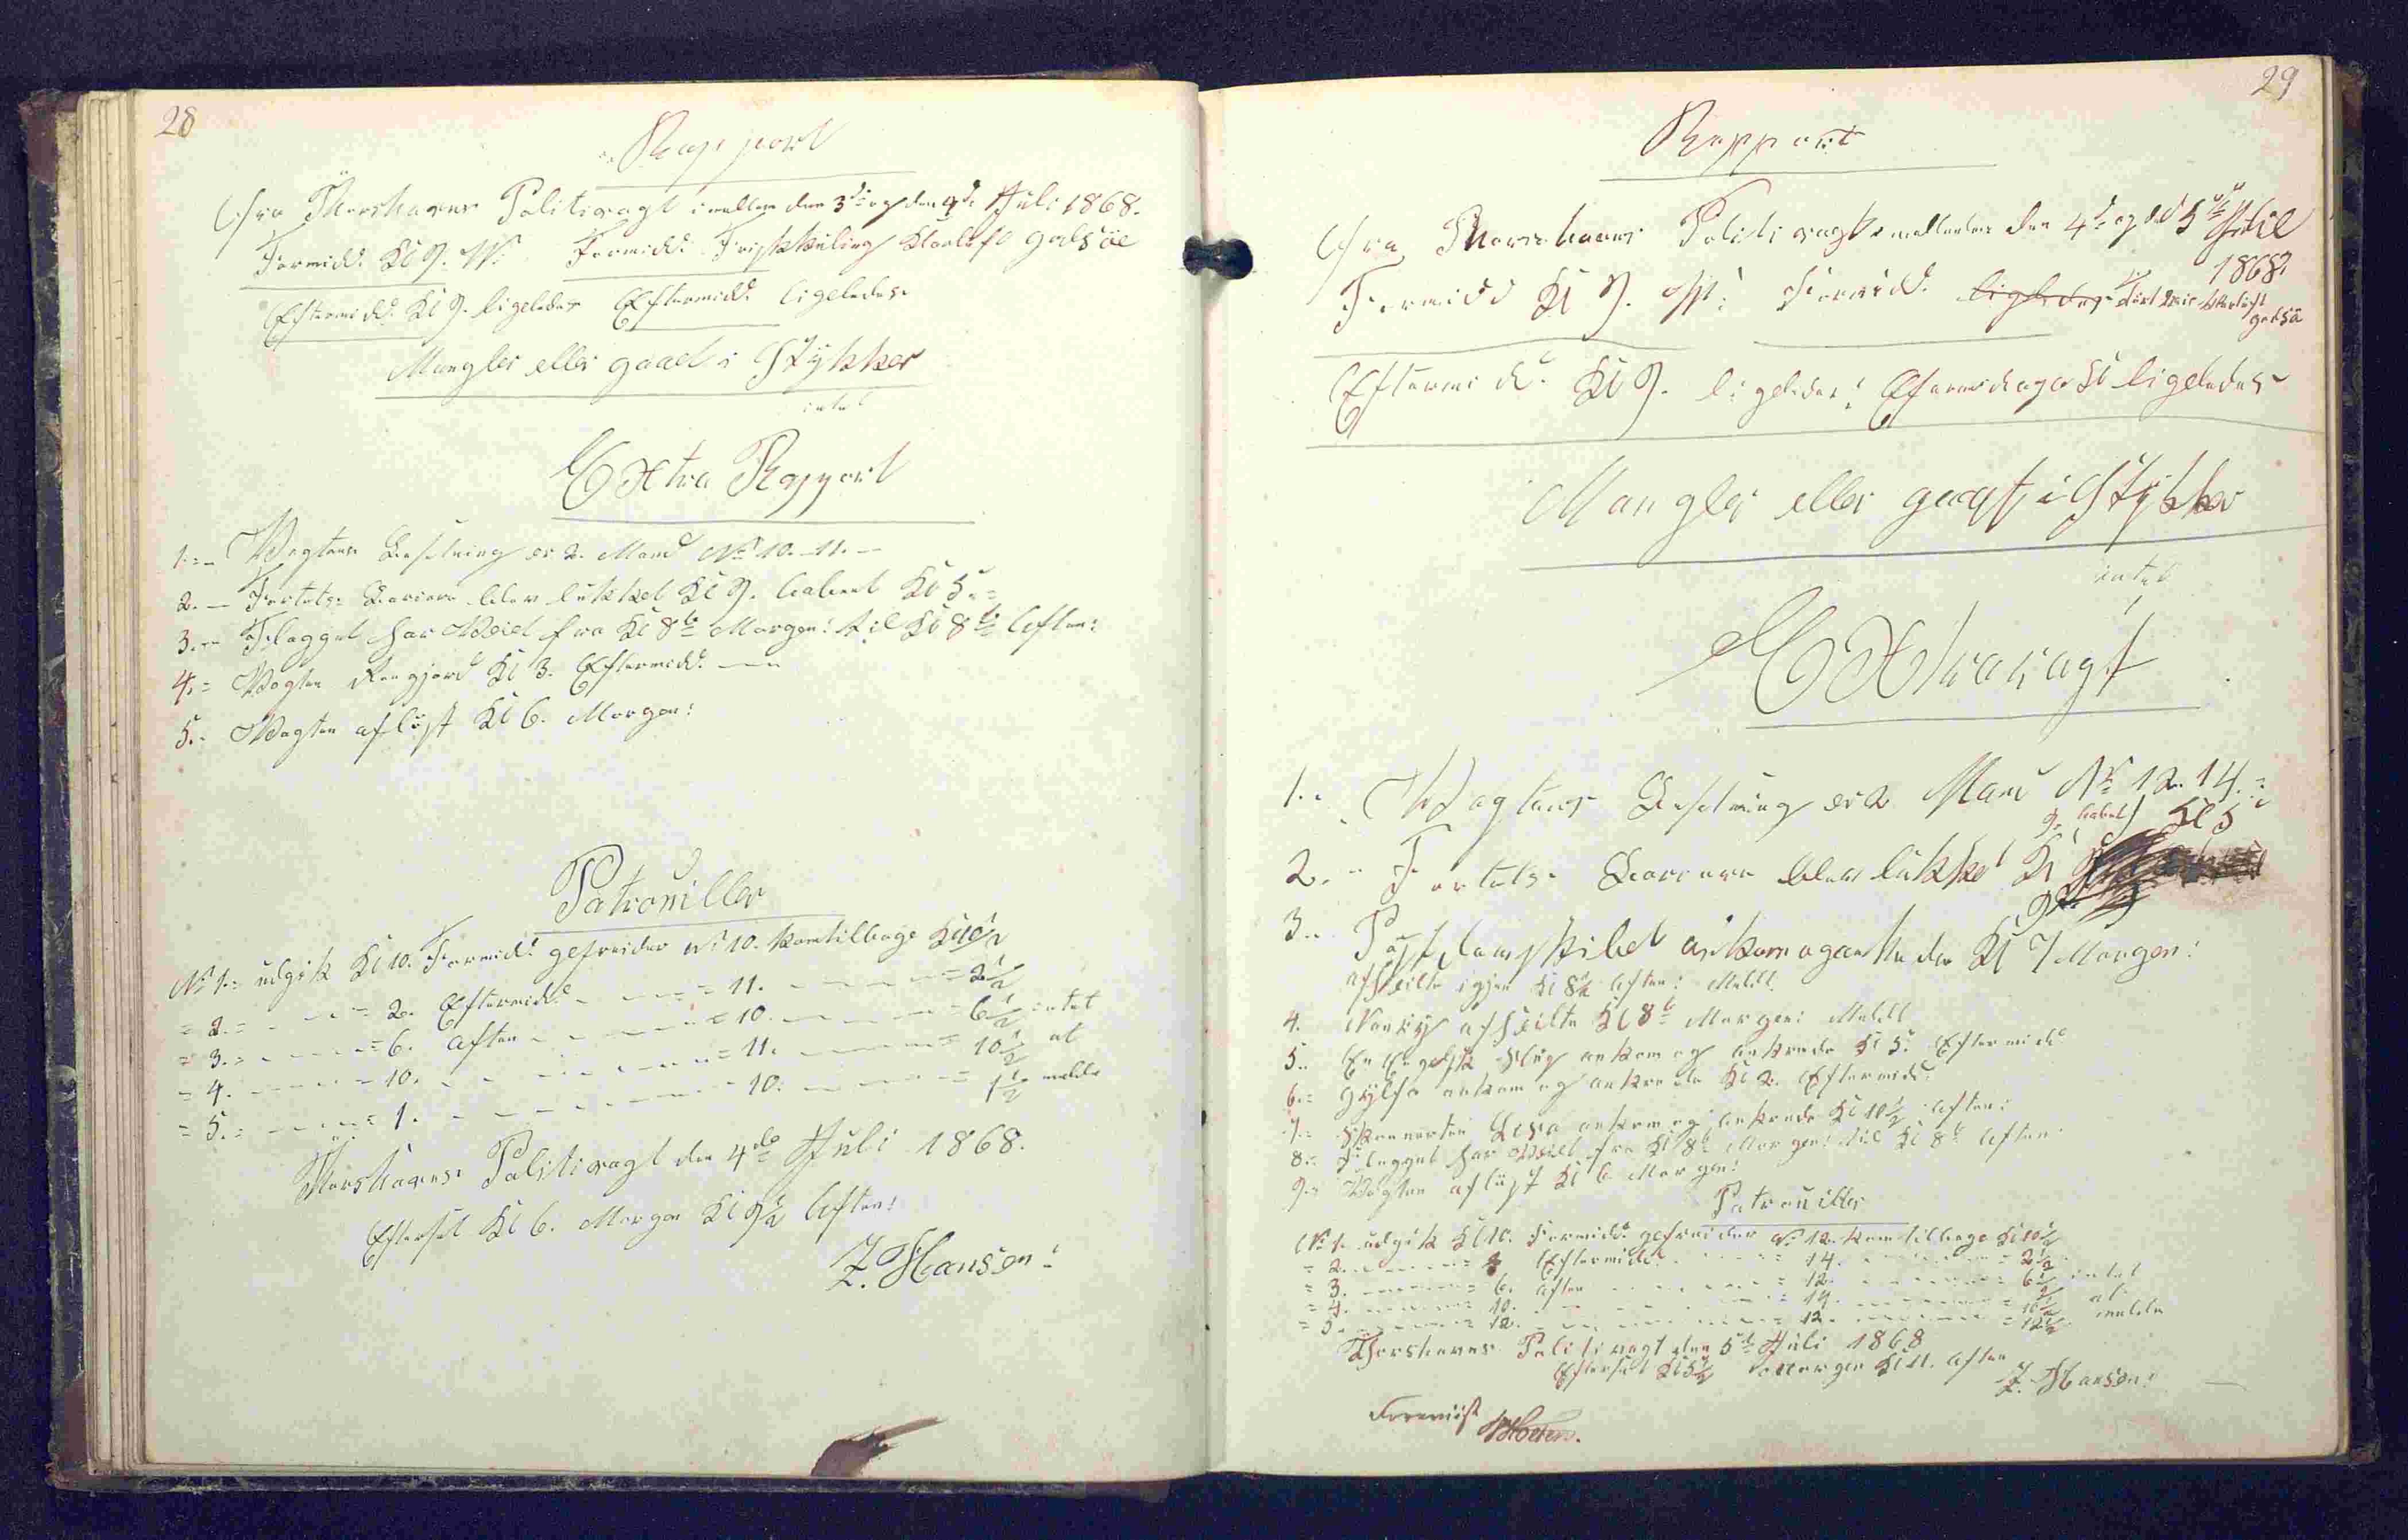 28
Rapport
fra Thorshavns Politivagt imellem den 3die og den 4de Juli 1868.
Formidd. Kl 9. W. Formidd. Friskkuling Klarluft godsöe
Eftermidd. Kl 9. ligeledes Eftermidd. ligeledes
Mangler eller gaaet i Stykker
intet
Extra Rapport
1. Vagtens Besetning er 2. Mand No 10. 11.
2. Fortets Barriere blev lukket Kl 9. aabnet Kl 5.
3. Flagget har Veiet fra Kl 8 Morgen: til Kl 8 Aften:
4. Vagten Rengjord Kl 3. Eftermidd.
5. Vagten aflöst Kl 6. Morgen:
Patrouiller
No 1. udgik Kl 10. Formidd. gefreider No 10. kom tilbage Kl 10 1/2
= 2. = 2. Eftermidd. = 11. = 2 1/2
= 3. = 6. Aften = 10. = 6 1/2 intet
= 4. = 10. = 11. = 10 1/2 at
= 5. = 1. = 10. = 1 1/2 melde
Thorshavns Politivagt den 4de Juli 1868.
Efterset Kl 6. Morgen Kl 9 1/2 Aften:
Z. Hanson
29
Rapport
fra Thorshavns Politivagt imellem den 4de og d 5te Juli
1868.
Formidd Kl 9. W. Formidd. ligeledes Klarluft
godsö
Eftermidd. Kl 9. ligeledes Eftermidag Kl ligeledes
Mangler eller gaaet i Stykker
intet
Extravagt
1. Vagtens Besetning er 2 Mand No 12. 14.
2. Fortets Barriere blev lukket Kl 9. aabnet Kl 5
3. Postdampskibet ankom og ankrede Kl 7 Morgen:
afseilte igjen Kl 8 1/2 Aften: Meldt
4. afseilte Kl 8 Morgen: Meldt
5. En Engelsk Slup ankom og ankrede Kl 5. Eftermidd
6. Gylfe ankom og ankrede Kl 2. Eftermidd.
7. Skonnerten ankom og ankrede Kl 10 1/2 Aften:
8. Flagget har Veiet fra Kl 8 Morgen: til Kl 8 Aften
9. Vagten aflöst Kl 6. Morgen:
Patrouiller
No 1. udgik Kl 10. Formidd. gefreider No 12. kom tilbage Kl 10 1/2
= 2. Eftermidd. = 14. = 2 1/2
= 3. = 6. Aften = 12. = 6 1/2 intet
= 4. = 10. = 14. = 10 1/2 at
= 5. = 12. = 12. = 12 1/2 melde
Thorshavns Politivagt den 5te Juli 1868
Efterset Kl 5 1/2 Morgen Kl 11. Aften
Z. Hanson
Foreviist